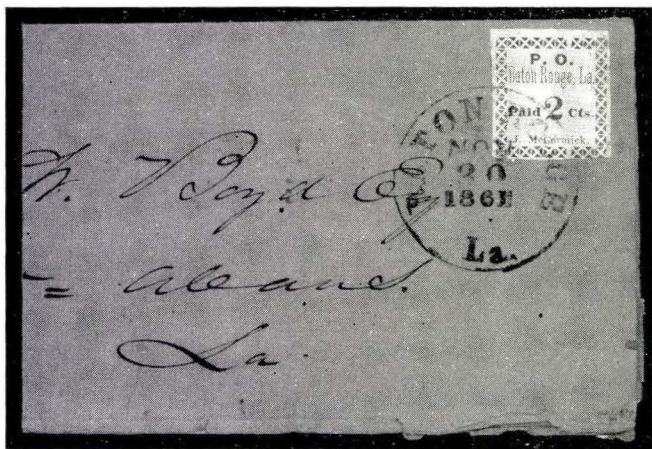 P. O.
Baton Rouge, La.
Paid 2 Cts.
J. McCormick.
NOV
20
1861
La.
W. Boyd Esq
= Orleans.
La.